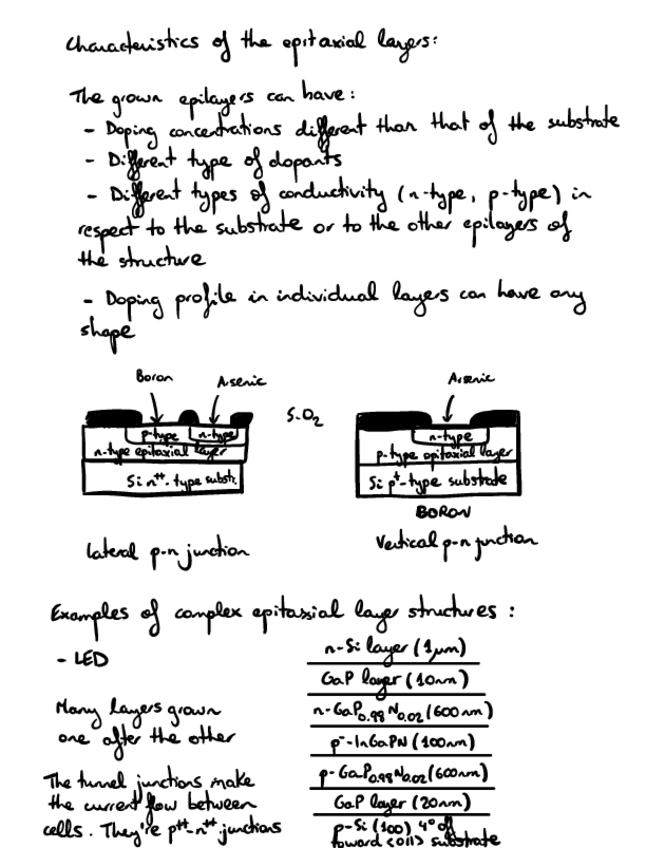 Characteristics of the epitaxial layers:
The grown epilayers can have:
- Doping concentrations different than that of the substrate
- Different type of dopants
- Different types of conductivity (n-type, p-type) in
respect to the substrate or to the other epilayers of
the structure
- Doping profile in individual layers can have any
shape
Boron
Arsenic
SiO2
p-type
n-type
n-type epitaxial layer
Si n++-type substr.
Lateral p-n junction
Arsenic
n-type
p-type epitaxial layer
Si p+-type substrate
BORON
Vertical p-n junction
Examples of complex epitaxial layer structures:
- LED
Many layers grown
one after the other
The tunnel junctions make
the current flow between
cells. They're p++-n++ junctions
n-Si layer (1μm)
GaP layer (10nm)
n-GaP0.98N0.02 (600nm)
p--InGaPN (100nm)
p-GaP0.98N0.02 (600nm)
GaP layer (20nm)
p-Si (100) 4° off
toward <011> substrate